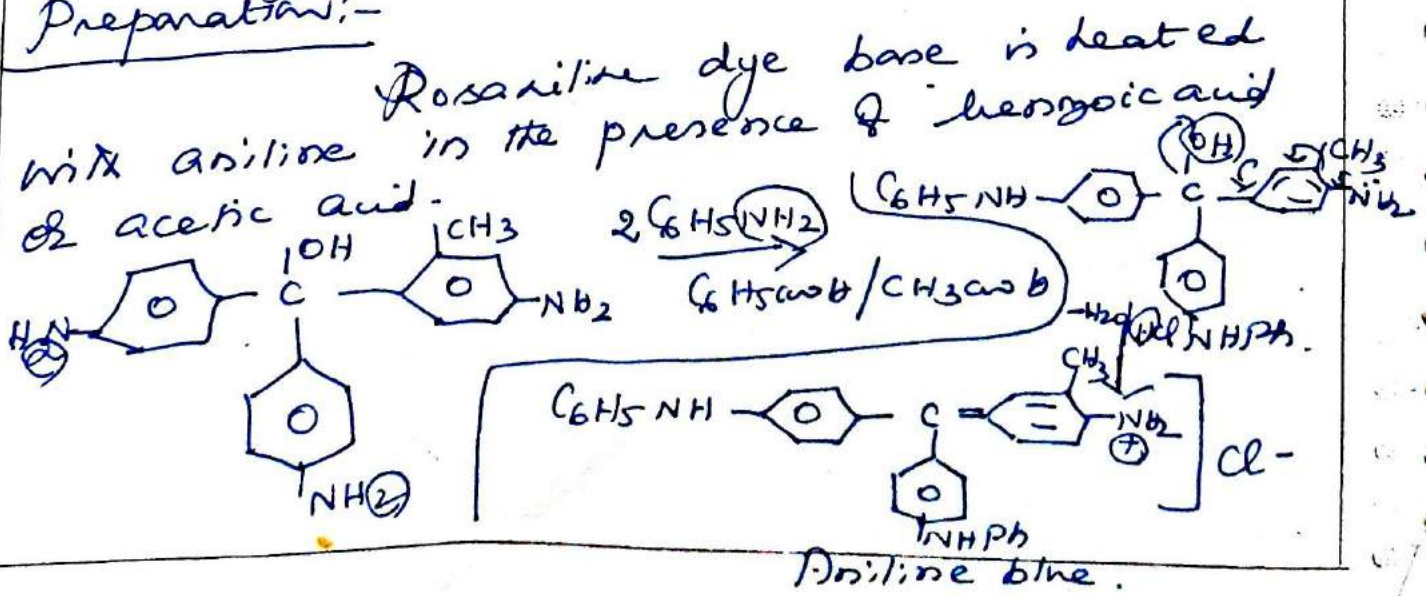 Preparation:-
Rosaniline dye base is heated
with aniline in the presence of benzoic acid
or acetic acid.
OH
CH3
H2N
C
NH2
NH2
2 C6H5NH2
C6H5COOH/CH3COOH
OH
C6H5NH
C
CH3
NH2
NHPh.
-H2O HCl
C6H5NH
C
CH3
NH2
+
Cl-
NHPh
Aniline blue.